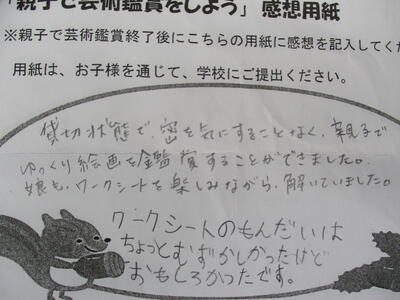 「親子で芸術鑑賞をしよう」感想用紙
※親子で芸術鑑賞終了後にこちらの用紙に感想を記入してくだ
用紙は、お子様を通じて、学校にご提出ください。
貸切状態で、密を気にすることなく、親子で
ゆっくり絵画を鑑賞することができました。
娘も、ワークシートを楽しみながら、解いていました。
ワークシートのもんだいは
ちょっとむずかしかったけど
おもしろかったです。